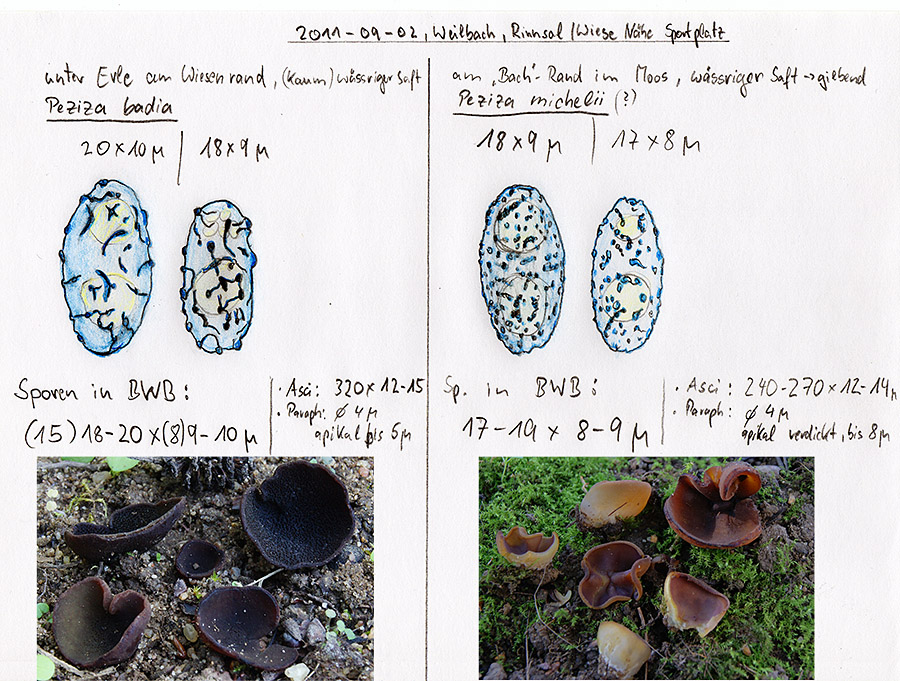 2011-09-02, Weilbach, Rinnsal/Wiese Nähe Sportplatz
unter Erle am Wiesenrand, (kaum) wässriger Saft
Peziza badia
20×10 µ | 18×9 µ
Sporen in BWB:
(15)18-20×(8)9-10 µ
· Asci: 320×12-15
· Paraph: ø 4 µ
apikal bis 5 µ
am „Bach“-Rand im Moos, wässriger Saft → gilbend
Peziza michelii (?)
18×9 µ | 17×8 µ
Sp. in BWB:
17-19 × 8-9 µ
· Asci: 240-270×12-14 µ
· Paraph: ø 4 µ
apikal verdickt, bis 8 µ